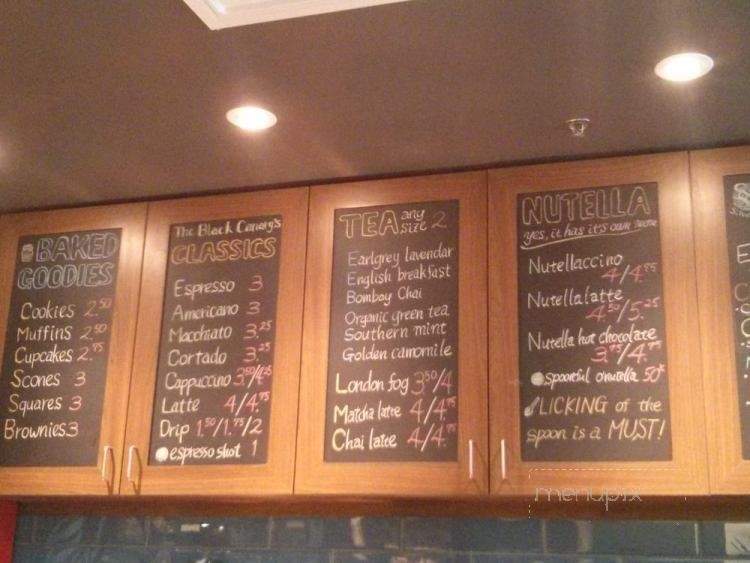 BAKED
GOODIES
Cookies 2.50
Muffins 2.50
Cupcakes 2.95
Scones 3
Squares 3
Brownies 3
The Black Canary's
CLASSICS
Espresso 3
Americano 3
Macchiato 3.25
Cortado 3.25
Cappuccino 3.50/4.25
Latte 4/4.75
Drip 1.50/1.75/2
espresso shot 1
TEA any size 2
Earlgrey lavendar
English breakfast
Bombay Chai
Organic green tea
Southern mint
Golden camomile
London fog 3.50/4
Matcha latte 4/4.75
Chai latte 4/4.75
NUTELLA
yes, it has it's own
Nutellaccino
4/4.75
Nutellalatte
4.50/5.25
Nutella hot chocolate
3.75/4.75
spoonful o'nutella 50¢
LICKING of the
spoon is a MUST!
menupix